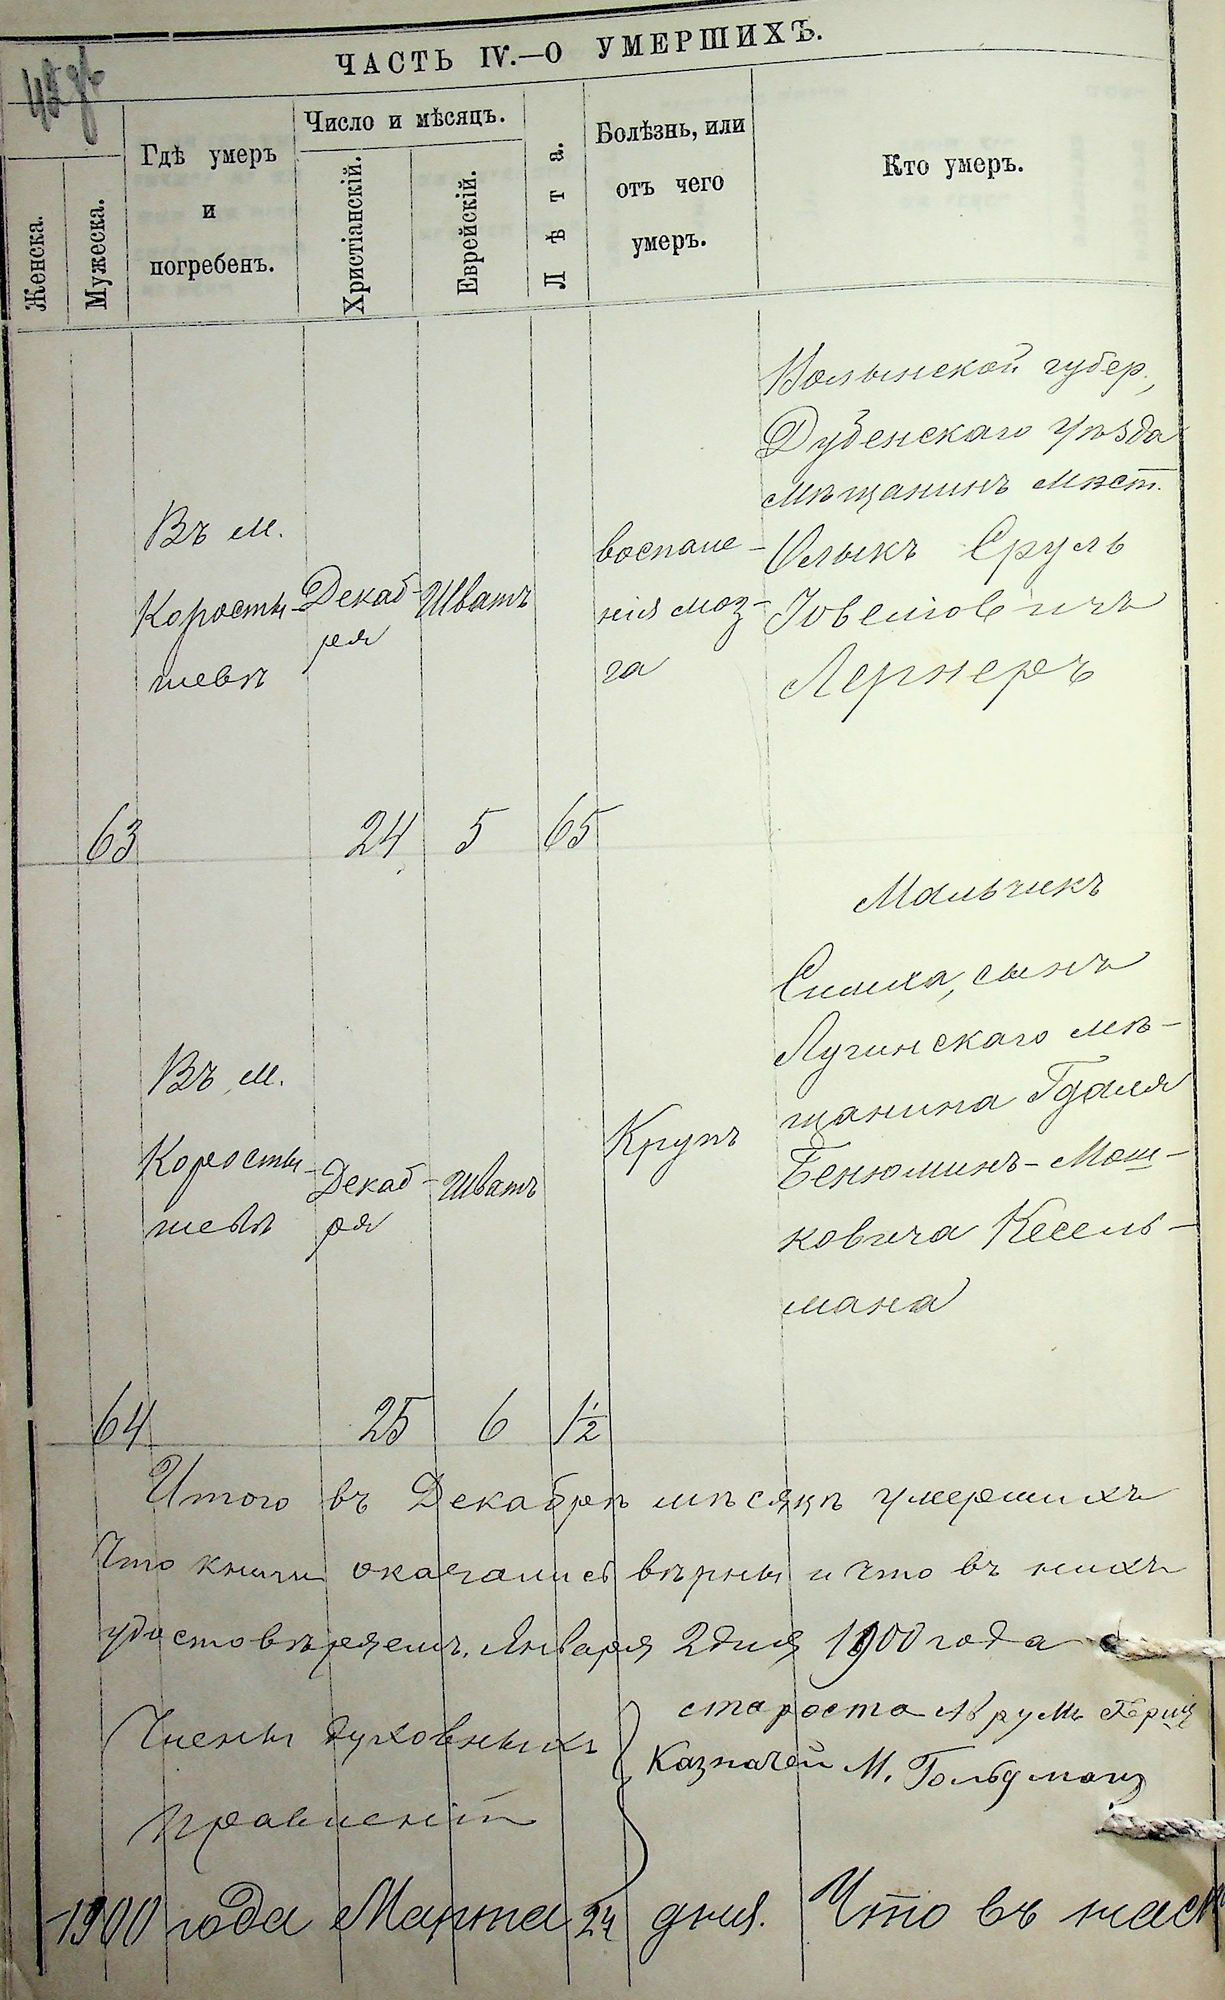 ЧАСТЬ IV.—О УМЕРШИХЪ.
Женска.
Мужеска.
Гдѣ умеръ
и
погребенъ.
Число и мѣсяцъ.
Христіанскій.
Еврейскій.
Лѣта.
Болѣзнь, или
отъ чего
умеръ.
Кто умеръ.
63
Въ м.
Коросты-
шевѣ
Декаб-
ря
24
Шватъ
5
65
воспале-
нія моз-
га
Волынской губер.,
Дубенскаго уѣзда
мѣщанинъ мѣст.
Олыкъ Сруль
Іовелiовичъ
Лернеръ
64
Въ м.
Коросты-
шевѣ
Декаб-
ря
25
Шватъ
6
1½
Крупъ
Мальчикъ
Симха, сынъ
Лугинскаго мѣ-
щанина Гдаля
Бенюминъ-Мош-
ковича Кесель-
мана
Итого въ Декабрѣ мѣсяцѣ умершихъ
Что книги оказались вѣрны и что въ нихъ
удостовѣряемъ. Января 2 дня 1900 года
Члены духовныхъ
правленій
староста Аврумъ Герш
Казначей М. Гольдманъ
1900 года Марта 24 дня. Что въ